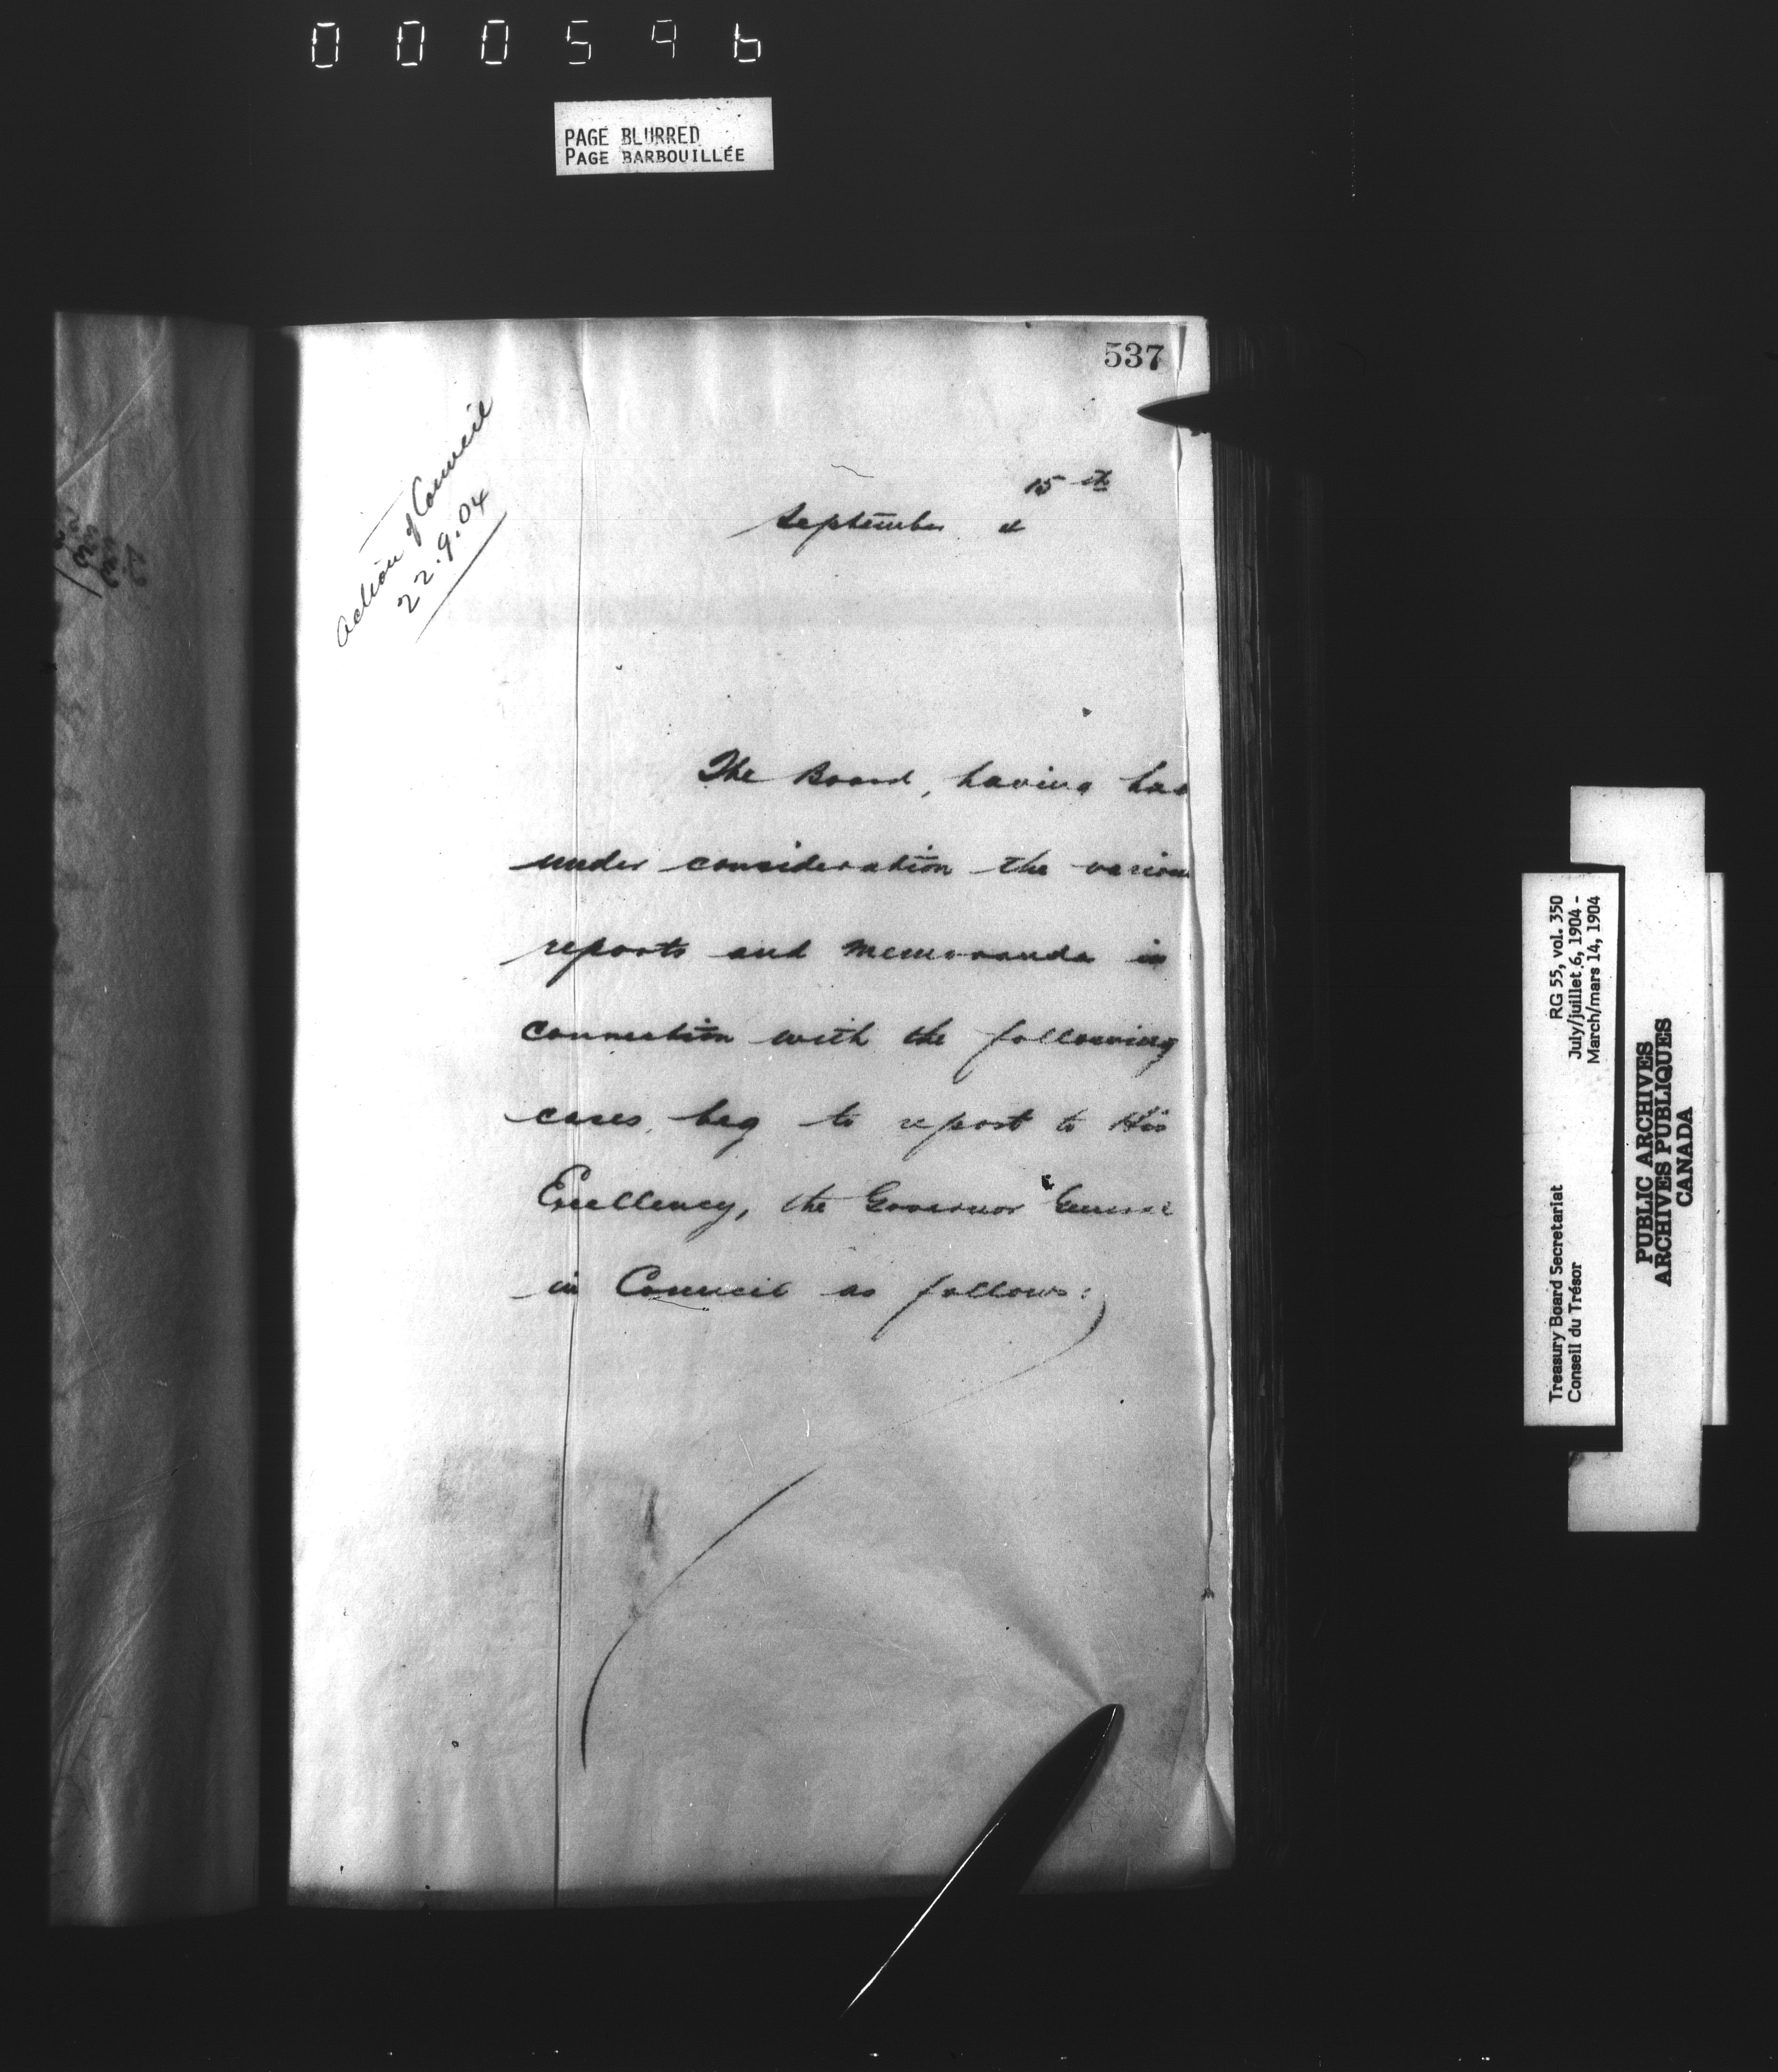 000596
PAGE BLURRED
PAGE BARBOUILLÉE
537
Action of Council
22.9.04
15th
September 4
The Board, having had
under consideration the various
reports and memoranda in
connection with the following
cases, beg to report to His
Excellency, the Governor General
in Council as follows:
RG 55, vol. 350
July/juillet 6, 1904 -
March/mars 14, 1904
Treasury Board Secretariat
Conseil du Trésor
PUBLIC ARCHIVES
ARCHIVES PUBLIQUES
CANADA